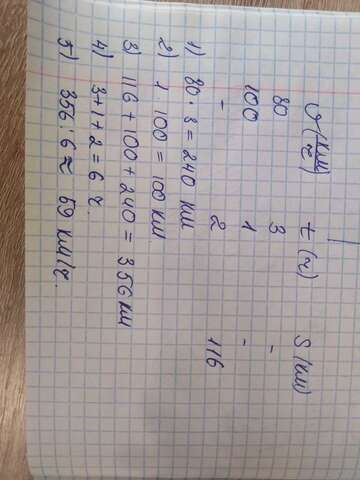 V (км/ч) t (ч) S (км)
80 3 -
100 1 -
- 2 116
1) 80 · 3 = 240 км
2) 1 100 = 100 км
3) 116 + 100 + 240 = 356 км
4) 3+1+2 = 6 ч.
5) 356 : 6 ≈ 59 км/ч.